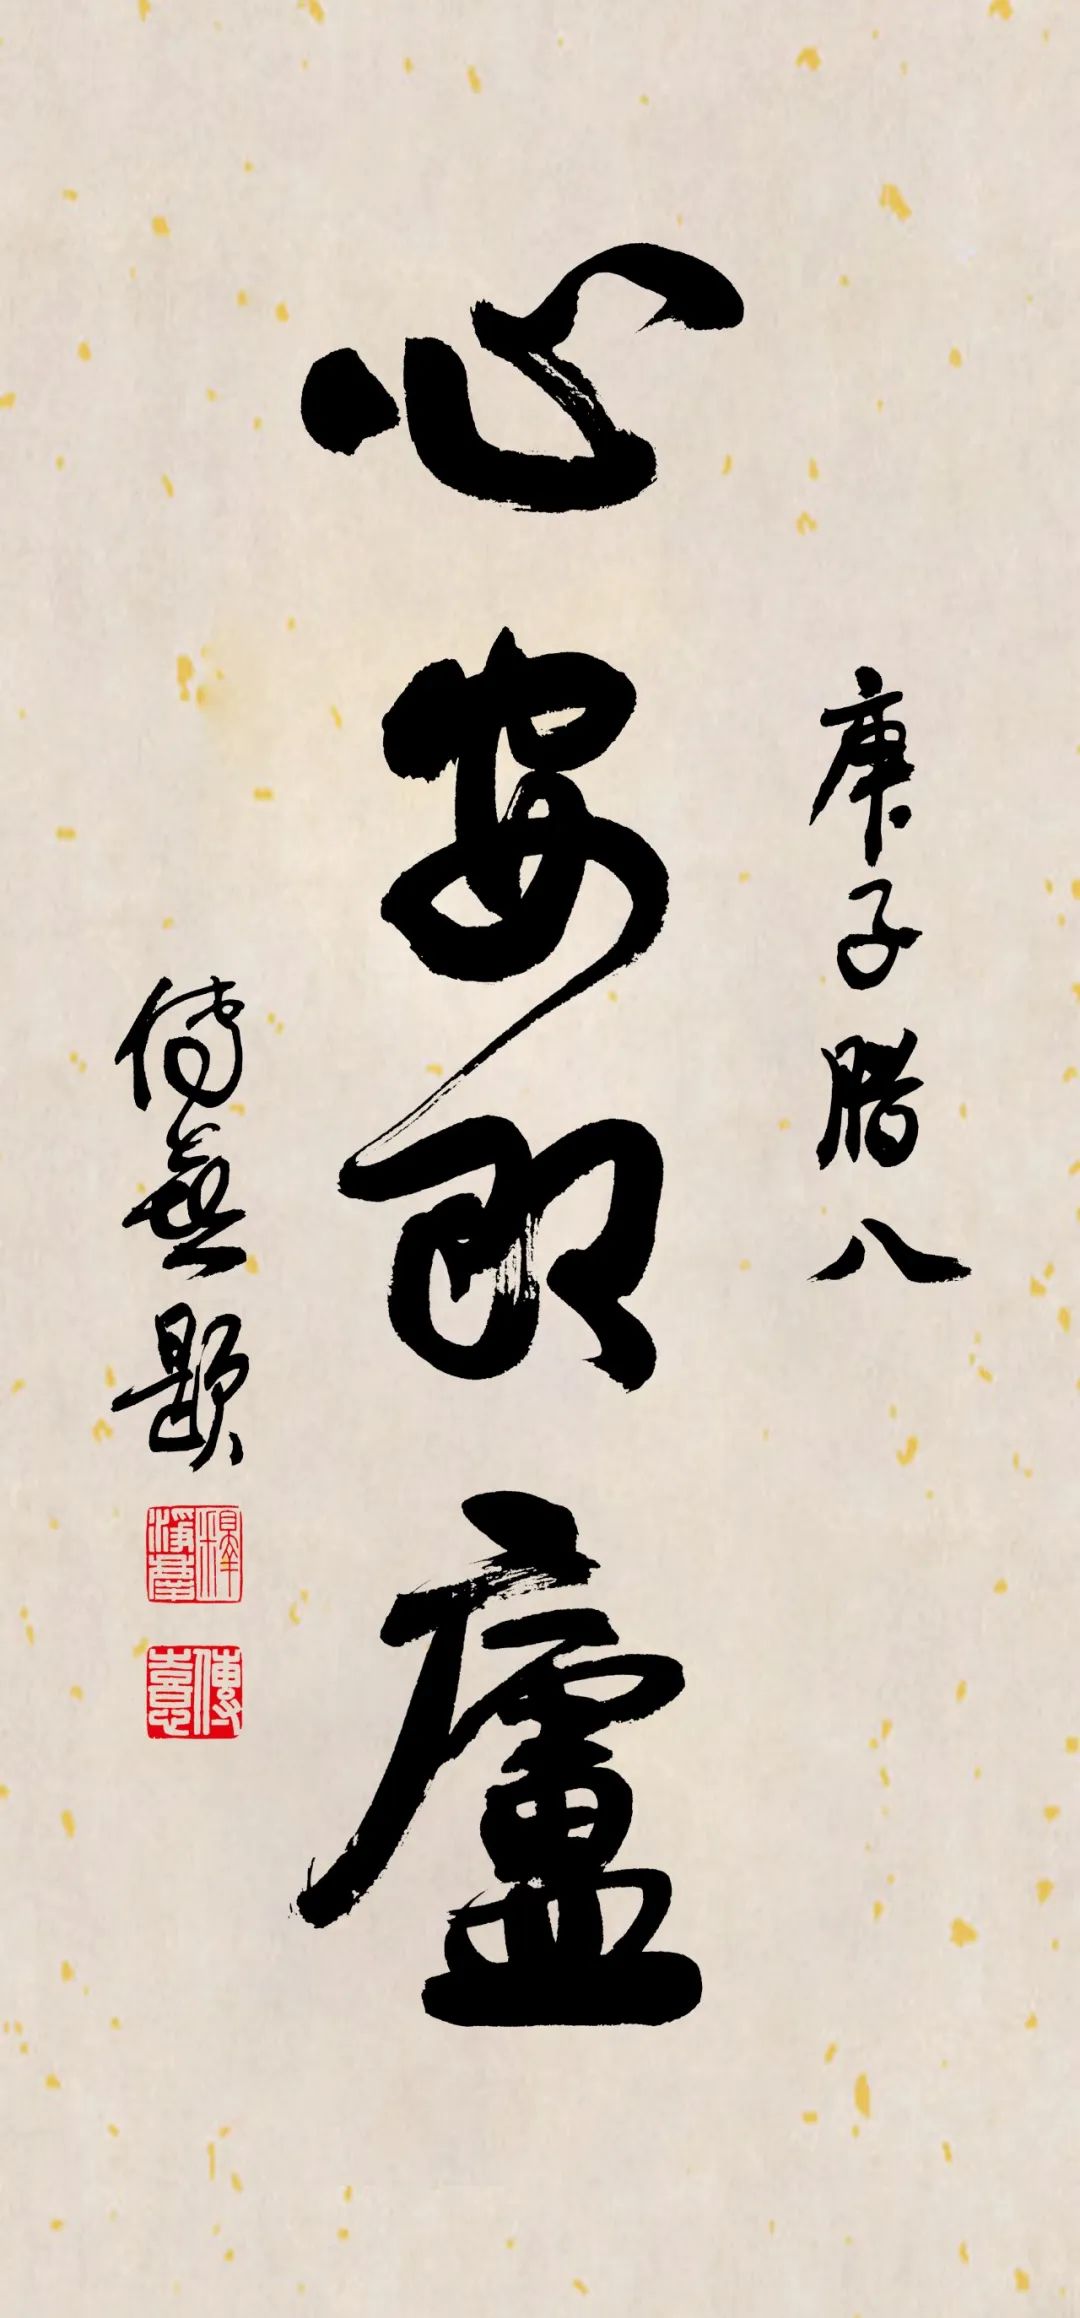 庚子腊八
心安即廬
傳喜題
傳喜